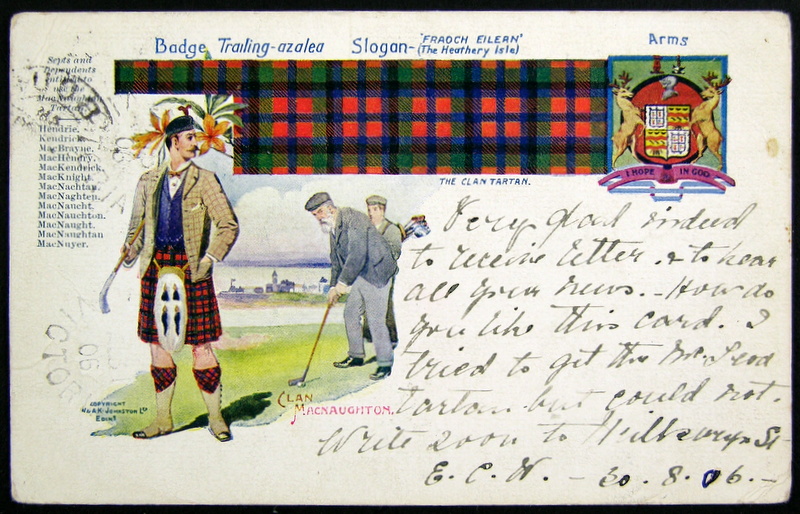 Badge Trailing-azalea Slogan- 'FRAOCH EILEAN' (The Heathery Isle)
Arms
Septs and
Dependents
entitled to
use the
MacNaughton
Tartan
Hendrie.
Kendrick.
MacBrayne.
MacHendry.
MacKendrick.
MacKnight.
MacNachtan.
MacNaghten.
MacNaucht.
MacNauchton.
MacNaught.
MacNaughtan
MacNuyer.
THE CLAN TARTAN.
I HOPE IN GOD
CLAN
MACNAUGHTON.
COPYRIGHT
W. & A.K. JOHNSTON LD
EDINR
Very glad indeed
to receive letter. & to hear
all your news. - How do
you like this card. I
tried to get the McLeod
tartan but could not.
Write soon to St
E. C. N. - 30. 8. 06. -
VICTO
06